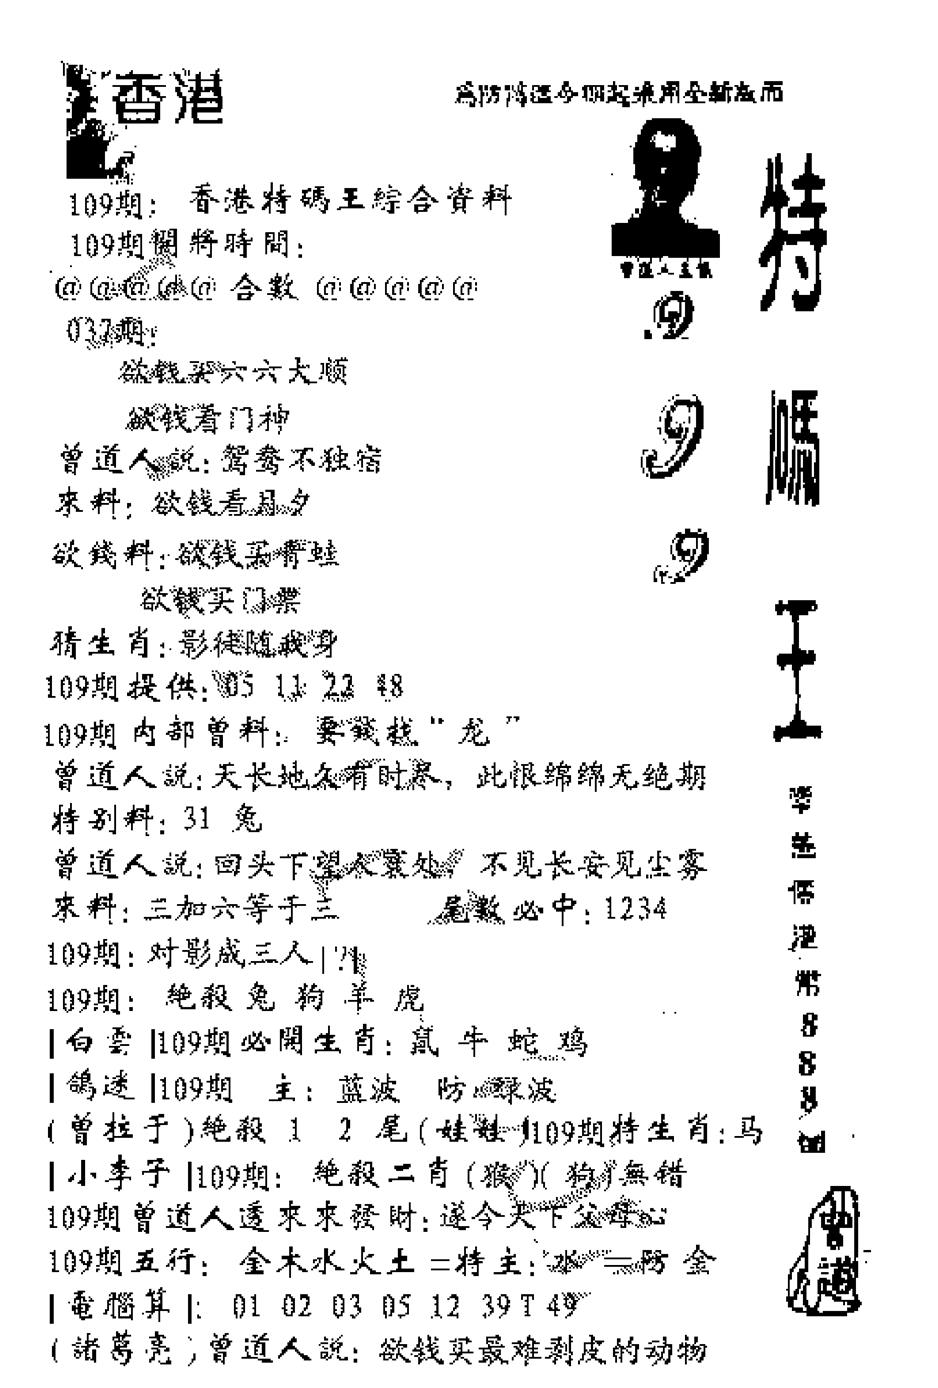 香港
109期: 香港特碼王綜合資料
109期關將時間:
@@@@@ 合數 @@@@@
032期:
欲钱买六六大顺
欲钱看门神
曾道人説:鸳鸯不独宿
來料: 欲钱看月夕
欲錢料:欲钱买青蛙
欲钱买门票
猜生肖:影徒随我身
109期提供:05 11 22 48
109期内部曾料: 要錢找“龙”
曾道人説:天长地久有时寒, 此恨绵绵无绝期
特别料: 31 兔
曾道人説:回头下望人寰处, 不见长安见尘雾
來料: 三加六等于三 尾數必中: 1234
109期:对影成三人|?|
109期: 絶殺 兔 狗 羊 虎
|白雲|109期必開生肖:鼠 牛 蛇 鸡
|鴿迷|109期 主: 蓝波 防 绿波
(曾拉于)絶殺 1 2 尾(娃娃)109期特生肖:马
|小李子|109期: 絶殺二肖(猴)(狗)無错
109期曾道人透來來發財:遂令天下父母心
109期五行: 金木水火土=特主:水=防 金
|電腦算|: 01 02 03 05 12 39T49
(諸葛亮)曾道人説: 欲钱买最难剥皮的动物
特
碼
王
9
9
9
港
幣
8
8
8
曾
道